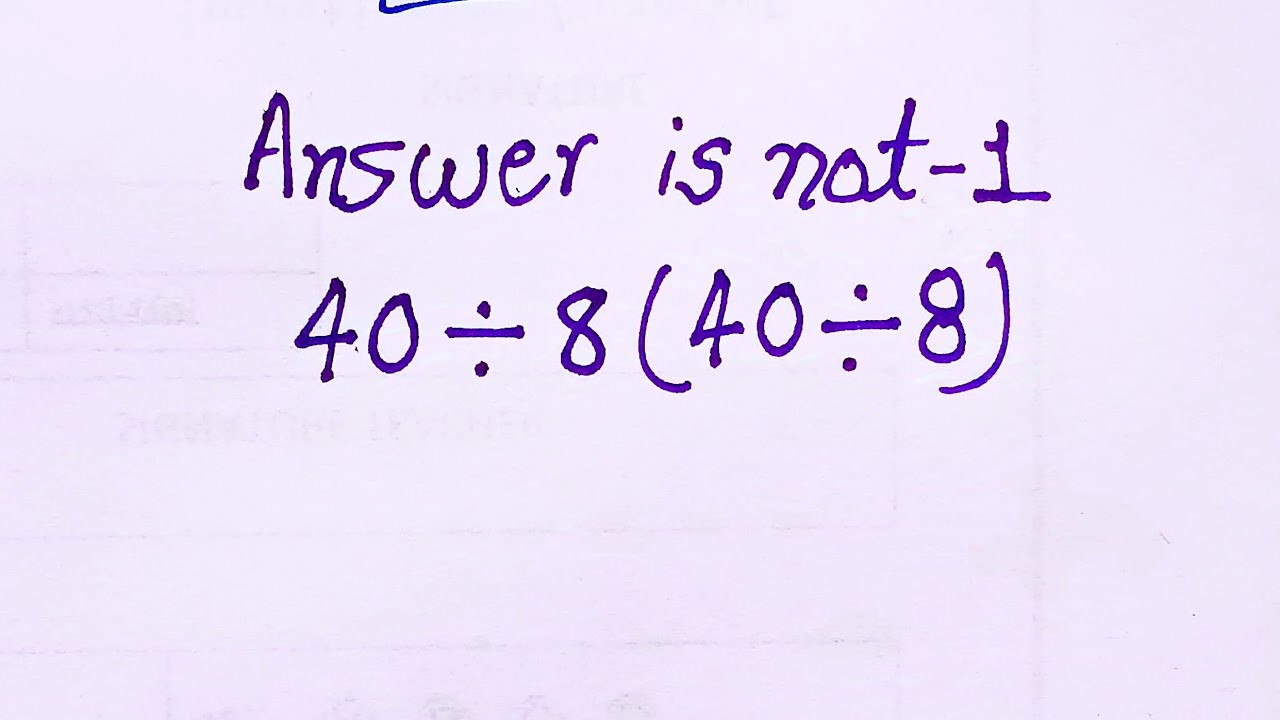 Answer is not-1
40÷8(40÷8)